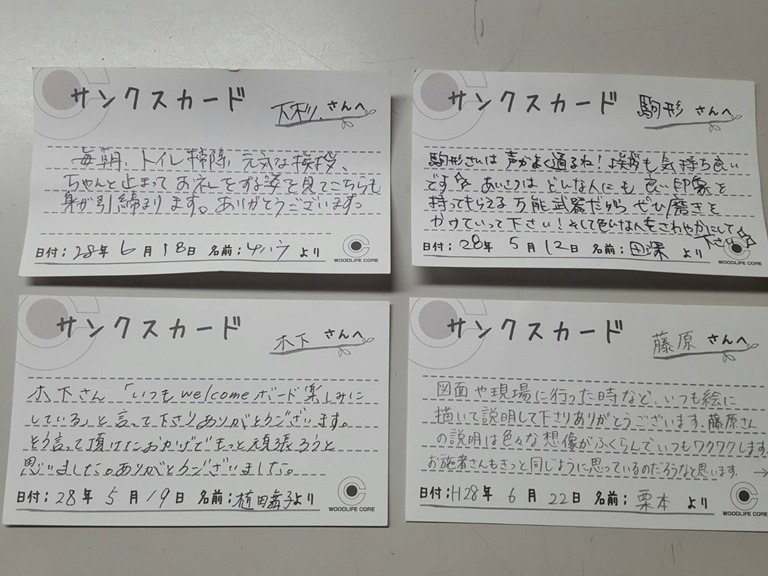 サンクスカード
さんへ
毎朝、トイレ掃除、元気な挨拶、
ちゃんと止まってお礼をする姿を見てこちらも
身が引締まります。ありがとうございます。
日付：28年 6月 18日 名前： より
WOODLIFE CORE
サンクスカード
駒形 さんへ
駒形さんは声がよく通るね！挨拶も気持ち良い
です☆ あいさつはどんな人にも良い印象を
持ってもらえる万能武器だから ぜひ磨きを
かけていって下さい！そして色んな人をさわやかにして
下さい☆
日付：28年 5月 12日 名前：田深 より
WOODLIFE CORE
サンクスカード
木下 さんへ
木下さん「いつもwelcomeボード楽しみに
している」と言って下さりありがとうございます。
そう言って頂けたおかげでもっと頑張ろうと
思いました。ありがとうございました。
日付：28年 5月 19日 名前：植田舞子より
WOODLIFE CORE
サンクスカード
藤原 さんへ
図面や現場に行った時など、いつも絵に
描いて説明して下さりありがとうございます。藤原さん
の説明は色々な想像がふくらんでいつもワクワクします。
お施主さんもきっと同じように思っているのだろうなと思います。→
日付：H28年 6月 22日 名前：栗本 より
WOODLIFE CORE